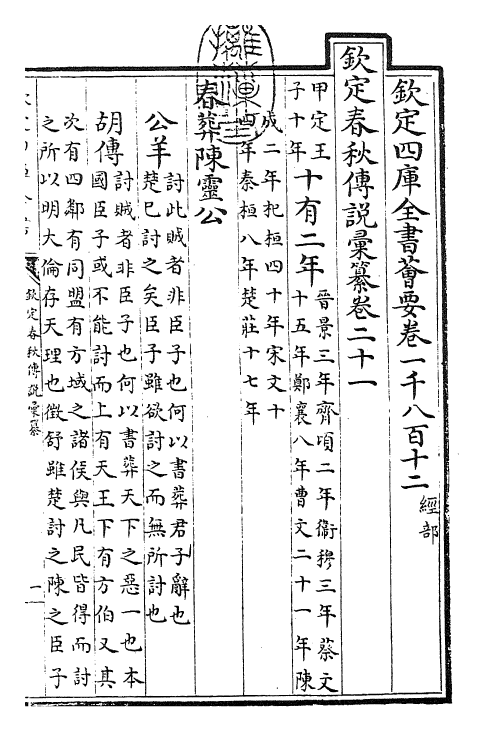 欽定四庫全書薈要卷一千八百十二 經部
欽定春秋傳說彙纂卷二十一
甲定王
子十年
十有二年
晉景三年齊頃二年衛穆三年蔡文
十五年鄭襄八年曹文二十一年陳
成二年杞桓四十年宋文十
年秦桓八年楚莊十七年
春葬陳靈公
公羊
討此賊者非臣子也何以書葬君子辭也
楚已討之矣臣子雖欲討之而無所討也
胡傳
討賊者非臣子也何以書葬天下之惡一也本
國臣子或不能討而上有天王下有方伯又其
次有四鄰有同盟有方域之諸侯與凡民皆得而討
之所以明大倫存天理也徵舒雖楚討之陳之臣子
欽定春秋傳說彙纂
一